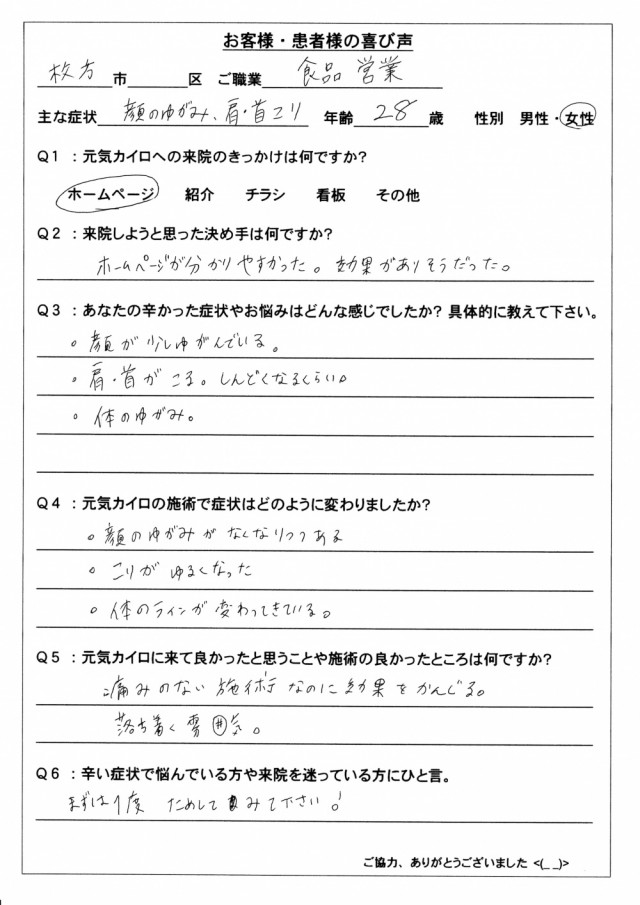 お客様・患者様の喜び声
枚方市 区 ご職業 食品 営業
主な症状 顔のゆがみ、肩・首コリ 年齢 28 歳 性別 男性・女性
Q1：元気カイロへの来院のきっかけは何ですか?
ホームページ 紹介 チラシ 看板 その他
Q2：来院しようと思った決め手は何ですか?
ホームページが分かりやすかった。効果がありそうだった。
Q3：あなたの辛かった症状やお悩みはどんな感じでしたか? 具体的に教えて下さい。
。顔が少しゆがんでいる。
。肩・首がこる。しんどくなるくらい。
。体のゆがみ。
Q4：元気カイロの施術で症状はどのように変わりましたか?
。顔のゆがみがなくなりつつある
。こりがゆるくなった
。体のラインが変わってきている。
Q5：元気カイロに来て良かったと思うことや施術の良かったところは何ですか?
痛みのない施術なのに効果をかんじる。
落ち着く雰囲気。
Q6：辛い症状で悩んでいる方や来院を迷っている方にひと言。
まずは1度 ためしてみて下さい!
ご協力、ありがとうございました <(_ _)>